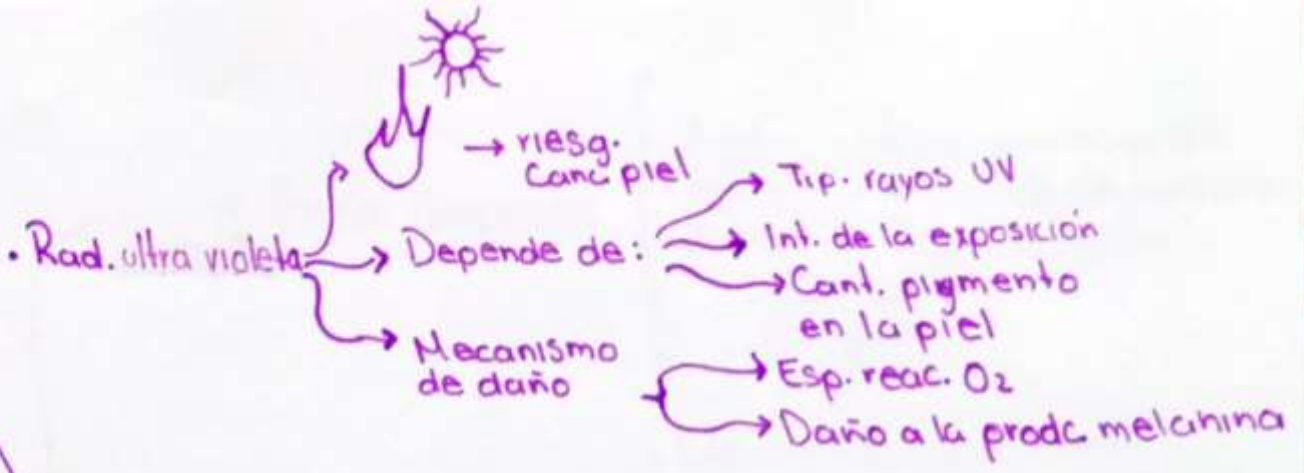 → riesg.
Canc. piel
• Rad. ultra violeta
Depende de:
Tip. rayos UV
Int. de la exposición
Cant. pigmento
en la piel
Mecanismo
de daño
Esp. reac. O2
Daño a la prodc. melanina